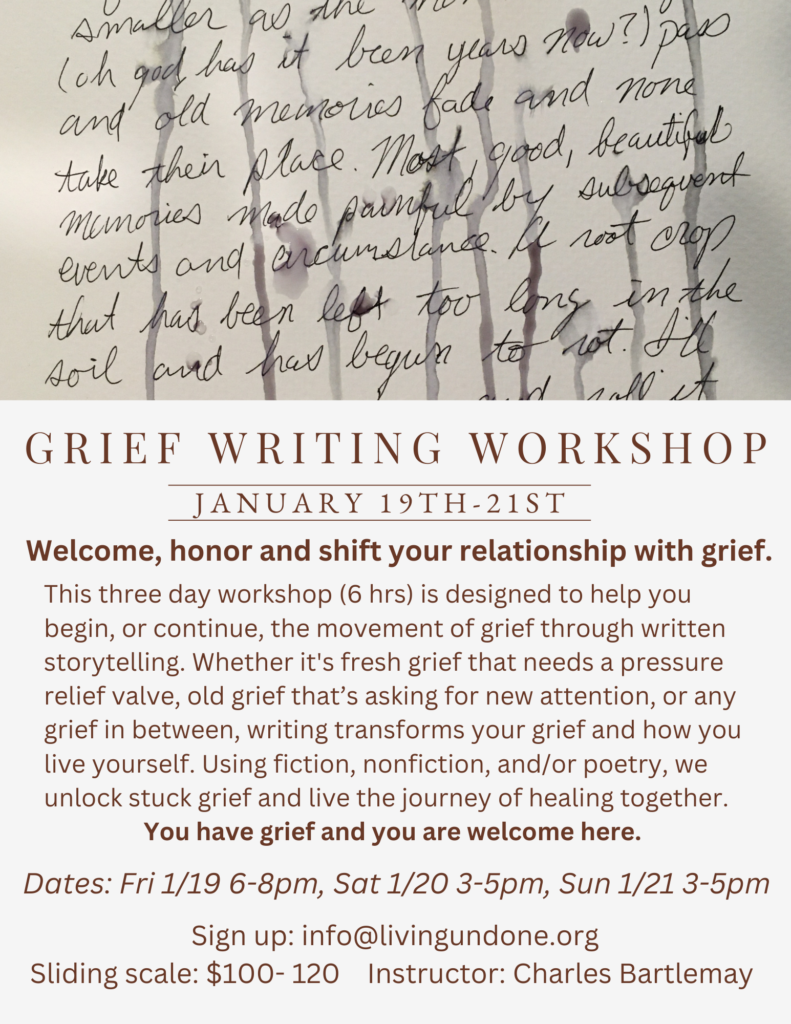 smaller as the
(oh god, has it been years now?) pass
and old memories fade and none
take their place. Most, good, beautiful
memories made painful by subsequent
events and circumstance. A root crop
that has been left too long in the
soil and has begun to rot. I'll
and roll it
GRIEF WRITING WORKSHOP
JANUARY 19TH-21ST
Welcome, honor and shift your relationship with grief.
This three day workshop (6 hrs) is designed to help you
begin, or continue, the movement of grief through written
storytelling. Whether it's fresh grief that needs a pressure
relief valve, old grief that’s asking for new attention, or any
grief in between, writing transforms your grief and how you
live yourself. Using fiction, nonfiction, and/or poetry, we
unlock stuck grief and live the journey of healing together.
You have grief and you are welcome here.
Dates: Fri 1/19 6-8pm, Sat 1/20 3-5pm, Sun 1/21 3-5pm
Sign up: info@livingundone.org
Sliding scale: $100- 120 Instructor: Charles Bartlemay